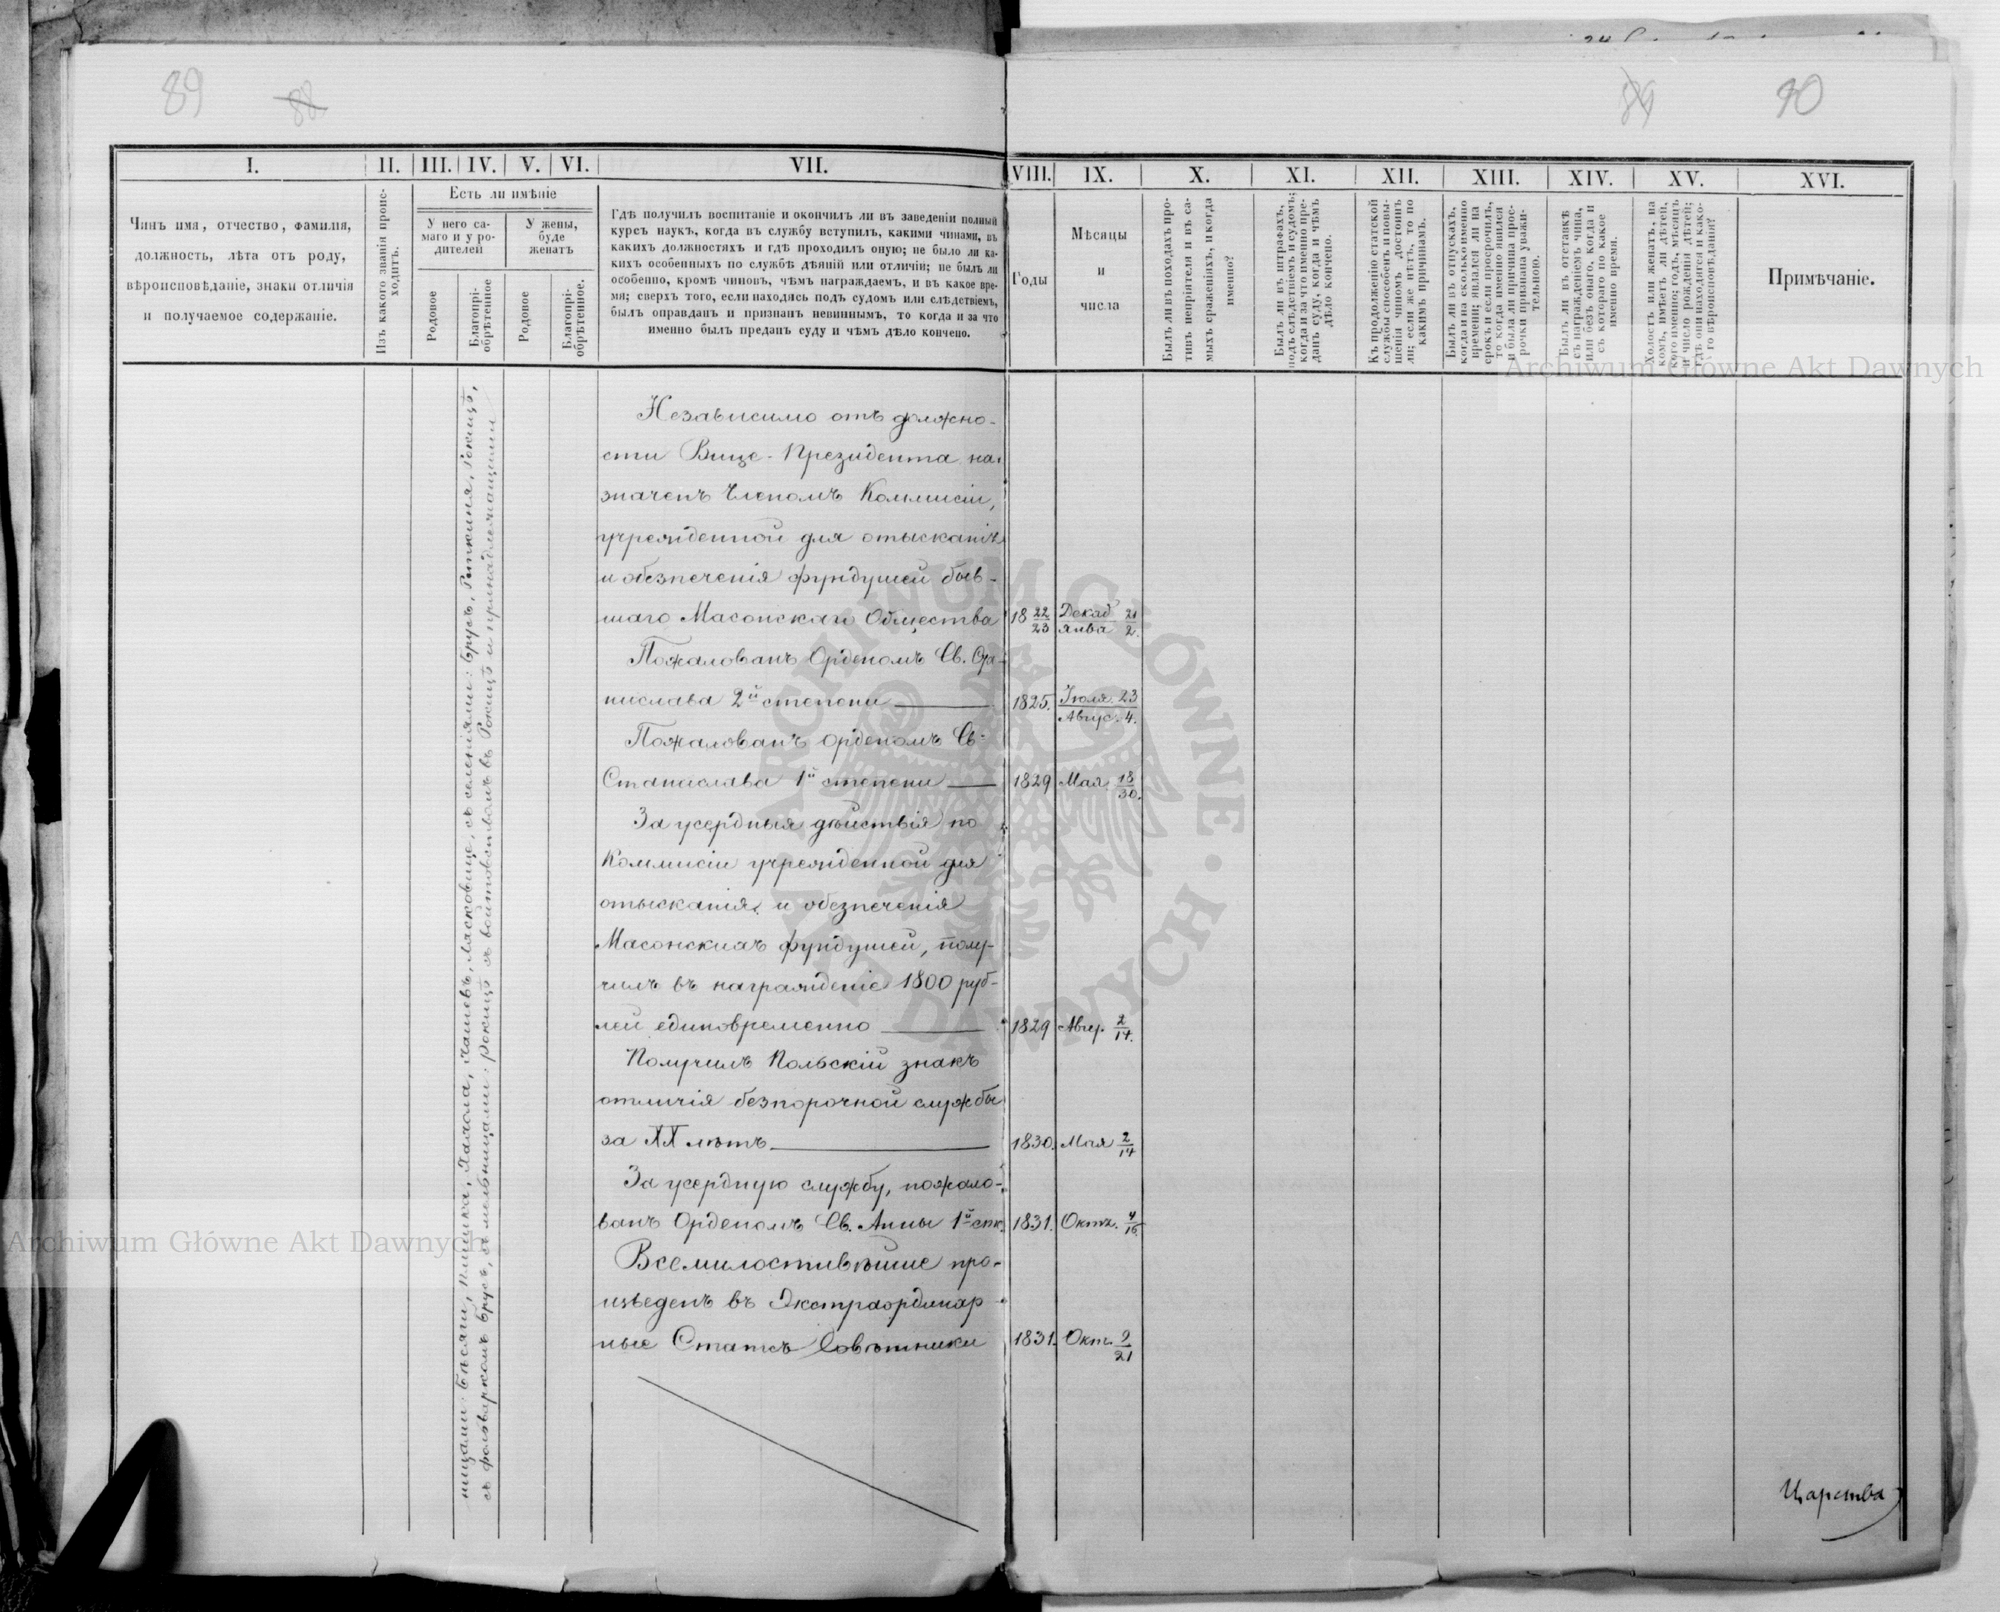 89 88
89 90
I. II. III. IV. V. VI. VII. VIII. IX. X. XI. XII. XIII. XIV. XV. XVI.
Чинъ имя, отчество, фамилія,
должность, лѣта отъ роду,
вѣроисповѣданіе, знаки отличія
и получаемое содержаніе.
Изъ какого званія проис-
ходитъ.
Есть ли имѣніе
У него са-
маго и у ро-
дителей
У жены,
буде
женатъ
Родовое
Благопрі-
обрѣтенное
Родовое
Благопрі-
обрѣтенное.
Гдѣ получилъ воспитаніе и окончилъ ли въ заведеніи полный
курсъ наукъ, когда въ службу вступилъ, какими чинами, въ
какихъ должностяхъ и гдѣ проходилъ оную; не было ли ка-
кихъ особенныхъ по службѣ дѣяній или отличій; не былъ ли
особенно, кромѣ чиновъ, чѣмъ награждаемъ, и въ какое вре-
мя; сверхъ того, если находясь подъ судомъ или слѣдствіемъ,
былъ оправданъ и признанъ невиннымъ, то когда и за что
именно былъ преданъ суду и чѣмъ дѣло кончено.
Годы
Мѣсяцы
и
числа
Былъ ли въ походахъ про-
тивъ непріятеля и въ са-
мыхъ сраженіяхъ, и когда
именно?
Былъ ли въ штрафахъ,
подъ слѣдствіемъ и судомъ;
когда и за что именно пре-
данъ суду, когда и чѣмъ
дѣло кончено.
Къ продолженію статской
службы способенъ и повы-
шенія чиномъ достоинъ
ли; если же нѣтъ, то по
какимъ причинамъ.
Былъ ли въ отпускахъ,
когда и на сколько именно
времени; являлся ли на
срокъ и если просрочилъ,
то когда именно явился
и была ли причина прос-
рочки признана уважи-
тельною.
Былъ ли въ отставкѣ
съ награжденіемъ чина,
или безъ онаго, когда и
съ котораго по какое
именно время.
Холостъ или женатъ, на
комъ, имѣетъ ли дѣтей,
кого именно; годъ, мѣсяцъ
и число рожденія дѣтей;
гдѣ они находятся и како-
го вѣроисповѣданія?
Примѣчаніе.
съ селеніями: Брусъ,
съ фольваркомъ Брусъ, съ мельницами: Рокицъ
Независимо отъ должно-
сти Вице-Президента на-
значенъ Членомъ Коммисіи,
учрежденной для отысканія
и обезпеченія фундушей быв-
шаго Масонскаго Общества 18 22/23 Декаб 21 / Янва 2.
Пожалованъ Орденомъ Св. Ста-
нислава 2й степени 1825. Іюля 23 / Авгус. 4.
Пожалованъ Орденомъ Св.
Станислава 1й степени 1829 Мая 18/30.
За усердныя дѣйствія по
Коммисіи учрежденной для
отысканія и обезпеченія
Масонскихъ фундушей, полу-
чилъ въ награжденіе 1800 руб-
лей единовременно 1829 Авгу. 2/14.
Получилъ Польскій знакъ
отличія безпорочной службы
за XX лѣтъ 1830. Мая 2/14
За усердную службу, пожало-
ванъ Орденомъ Св. Анны 1й сте. 1831. Октя. 4/16.
Всемилостивѣйше про-
изведенъ въ Экстраординар-
ные Статсъ Совѣтники 1831. Окт. 9/21
Царства
Archiwum Główne Akt Dawnych
Archiwum Główne Akt Dawnych
ARCHIWUM GŁÓWNE AKT DAWNYCH